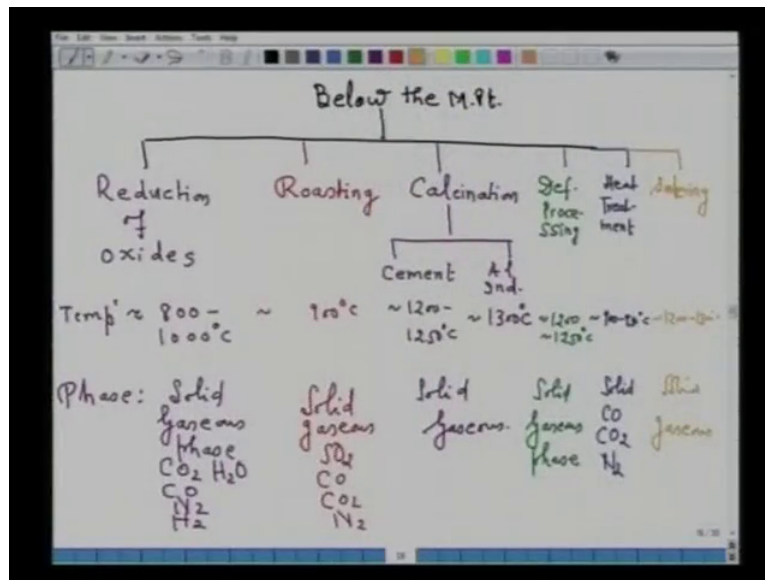 File Edit View Insert Actions Tools Help
Below the M.Pt.
Reduction
of
oxides
Roasting
Calcination
Def.
Proce-
ssing
Heat
Treat-
ment
Cement
Al
Ind.
Temp ≈ 800-
1000°C
~ 900°C
~1200-
1250°C
~1300°C
~1200
~1250°C
Phase: Solid
Gaseous
phase
CO2 H2O
CO
N2
H2
Solid
gaseous
SO2
CO
CO2
N2
Solid
Gaseous
Solid
Gaseous
phase
Solid
CO
CO2
N2
Gaseous